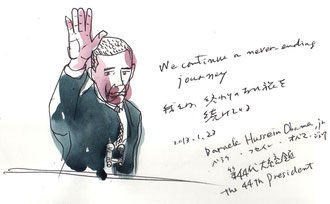 We continue a never ending
journey
終わりのない旅を
続けている
2013.1.23
Barack Hussein Obama, jr
バラク・フセイン・オバマ・ジュニア
第44代大統領
the 44th President